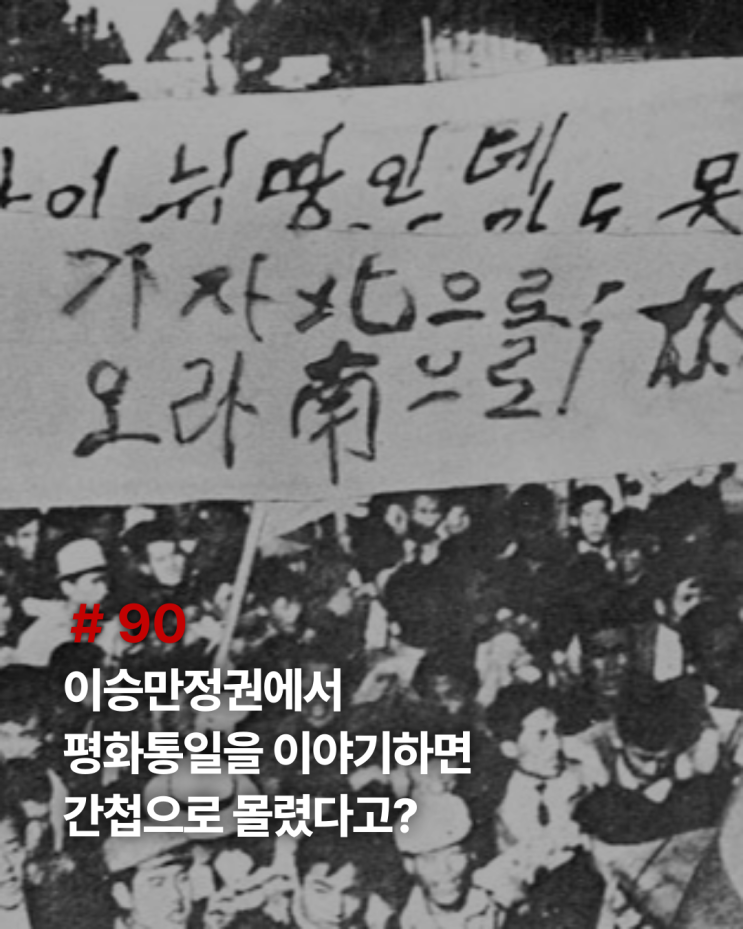 이 뉘 땅인데 못
가자 北으로!
오라 南으로!
# 90
이승만정권에서
평화통일을 이야기하면
간첩으로 몰렸다고?